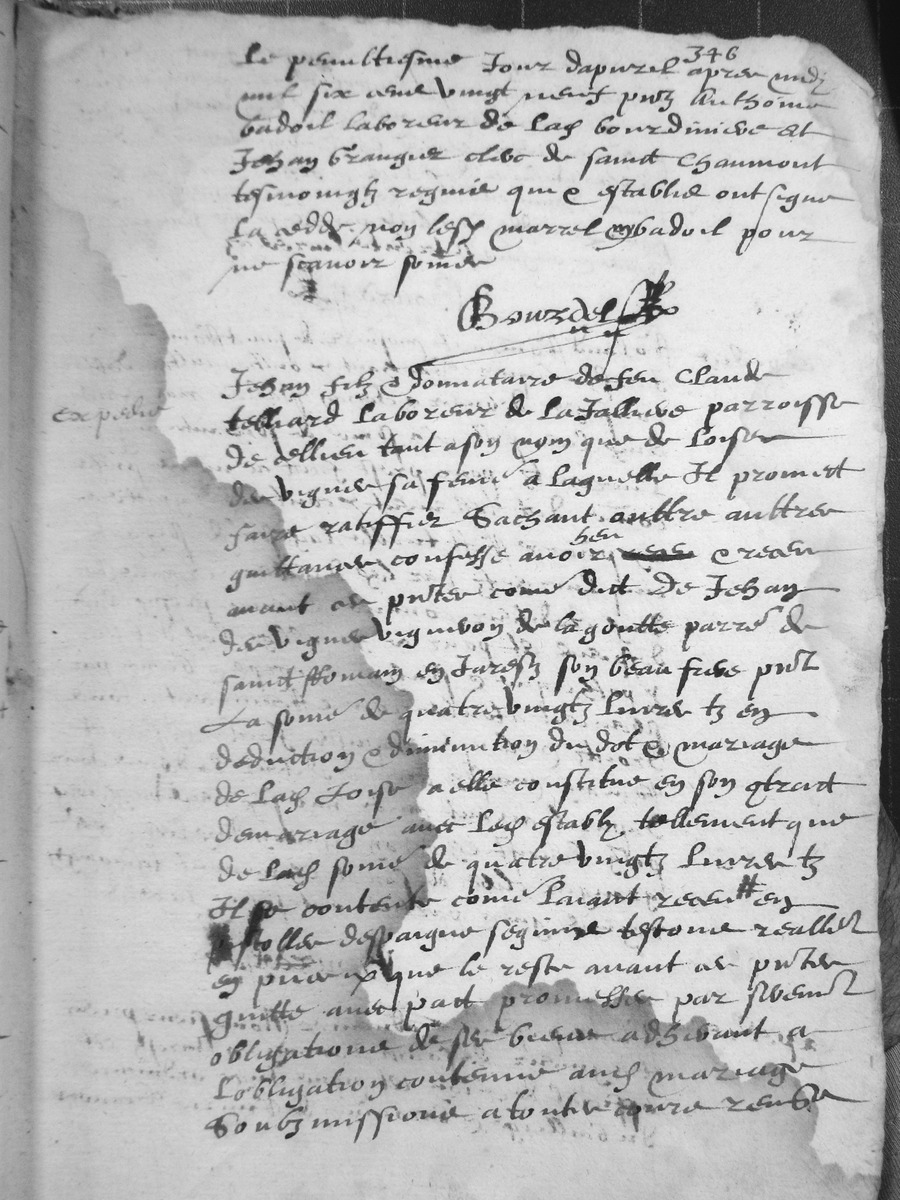 346
Le penultiesme Jour dapvril apres midy
mil six cens vingt neuf pntz Anthoine
badoil laboreur de lad bourdiniere et
Jehan Grangier clerc de sainct Chaumont
tesmoingtz requis qui & establis ont signe
la cedde non lesd marrel ny badoil pour
ne scavoir somes
Bourdel
Jehan filz & donnataire de feu Claude
telliard laboreur de la Jalliere parroisse
expedie
de cellieu tant a son nom que de Loise
des vignes sa feme a laquelle Il promect
faire ratiffier Sachant aultre aultres
quittances confesse avoir heu & receu
avant ces pntes come dict De Jehan
des vignes vigneron de la goutte parre de
sainct Romain en Jarestz son beau frere pnt
La some de quatre vingtz livres tz en
deduction & diminution du dot & mariage
de lad Loise a elle constitue en son qtraict
de mariage avec led estably tellement que
de lad some de quatre vingtz livres tz
Il se contente come layant receu en
pistolles despaigne testons
en que le reste avant ces pntes
quitte avec pact promesses par serment
obligations de ses biens adherant a
Lobligation contenue aud mariage
Soubzmissions a toutes cours